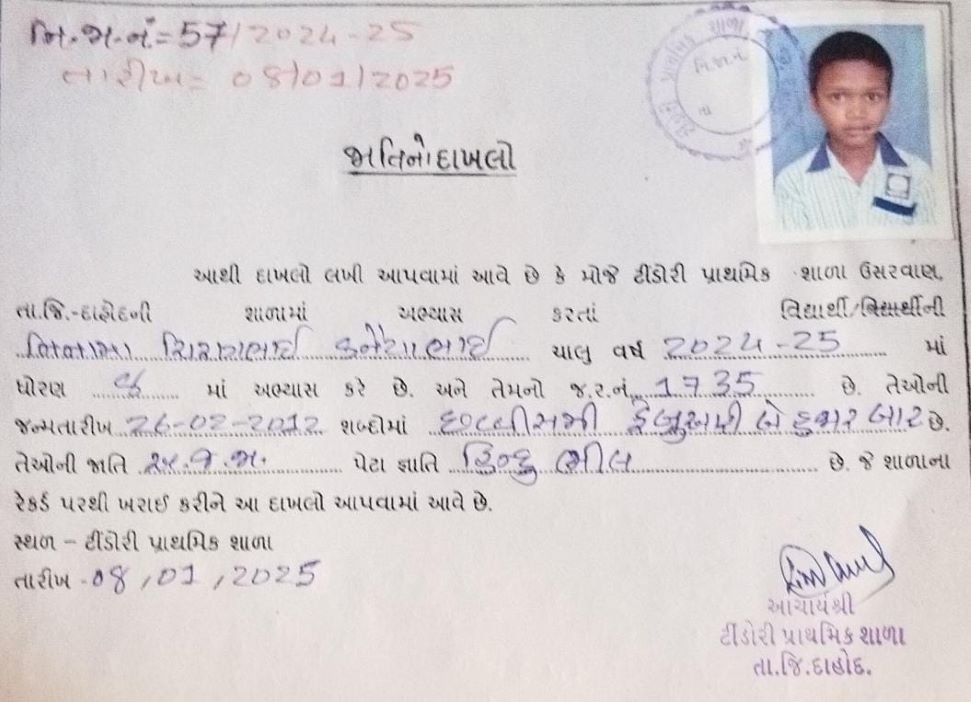 નિ.શા.નં=57/2024-25
તારીખ= 08/01/2025
જાતિનો દાખલો
આથી દાખલો લખી આપવામાં આવે છે કે મોજે ટીંડોરી પ્રાથમિક શાળા ઉસરવાણ,
તા.જિ.-દાહોદની શાળામાં અભ્યાસ કરતાં વિદ્યાર્થી/વિદ્યાર્થીની
ચાલુ વર્ષ 2024-25 માં
ધોરણ માં અભ્યાસ કરે છે. અને તેમનો જ.ર.નં. 1735 છે. તેઓની
જન્મતારીખ 26-02-2012 શબ્દોમાં છવ્વીસમી ફેબ્રુઆરી બે હજાર બાર છે.
તેઓની જાતિ અ.જ.જા. પેટા જ્ઞાતિ હિન્દુ ભીલ છે. જે શાળાના
રેકર્ડ પરથી ખરાઈ કરીને આ દાખલો આપવામાં આવે છે.
સ્થળ – ટીંડોરી પ્રાથમિક શાળા
તારીખ -08,01,2025
આચાર્યશ્રી
ટીંડોરી પ્રાથમિક શાળા
તા.જિ.દાહોદ.